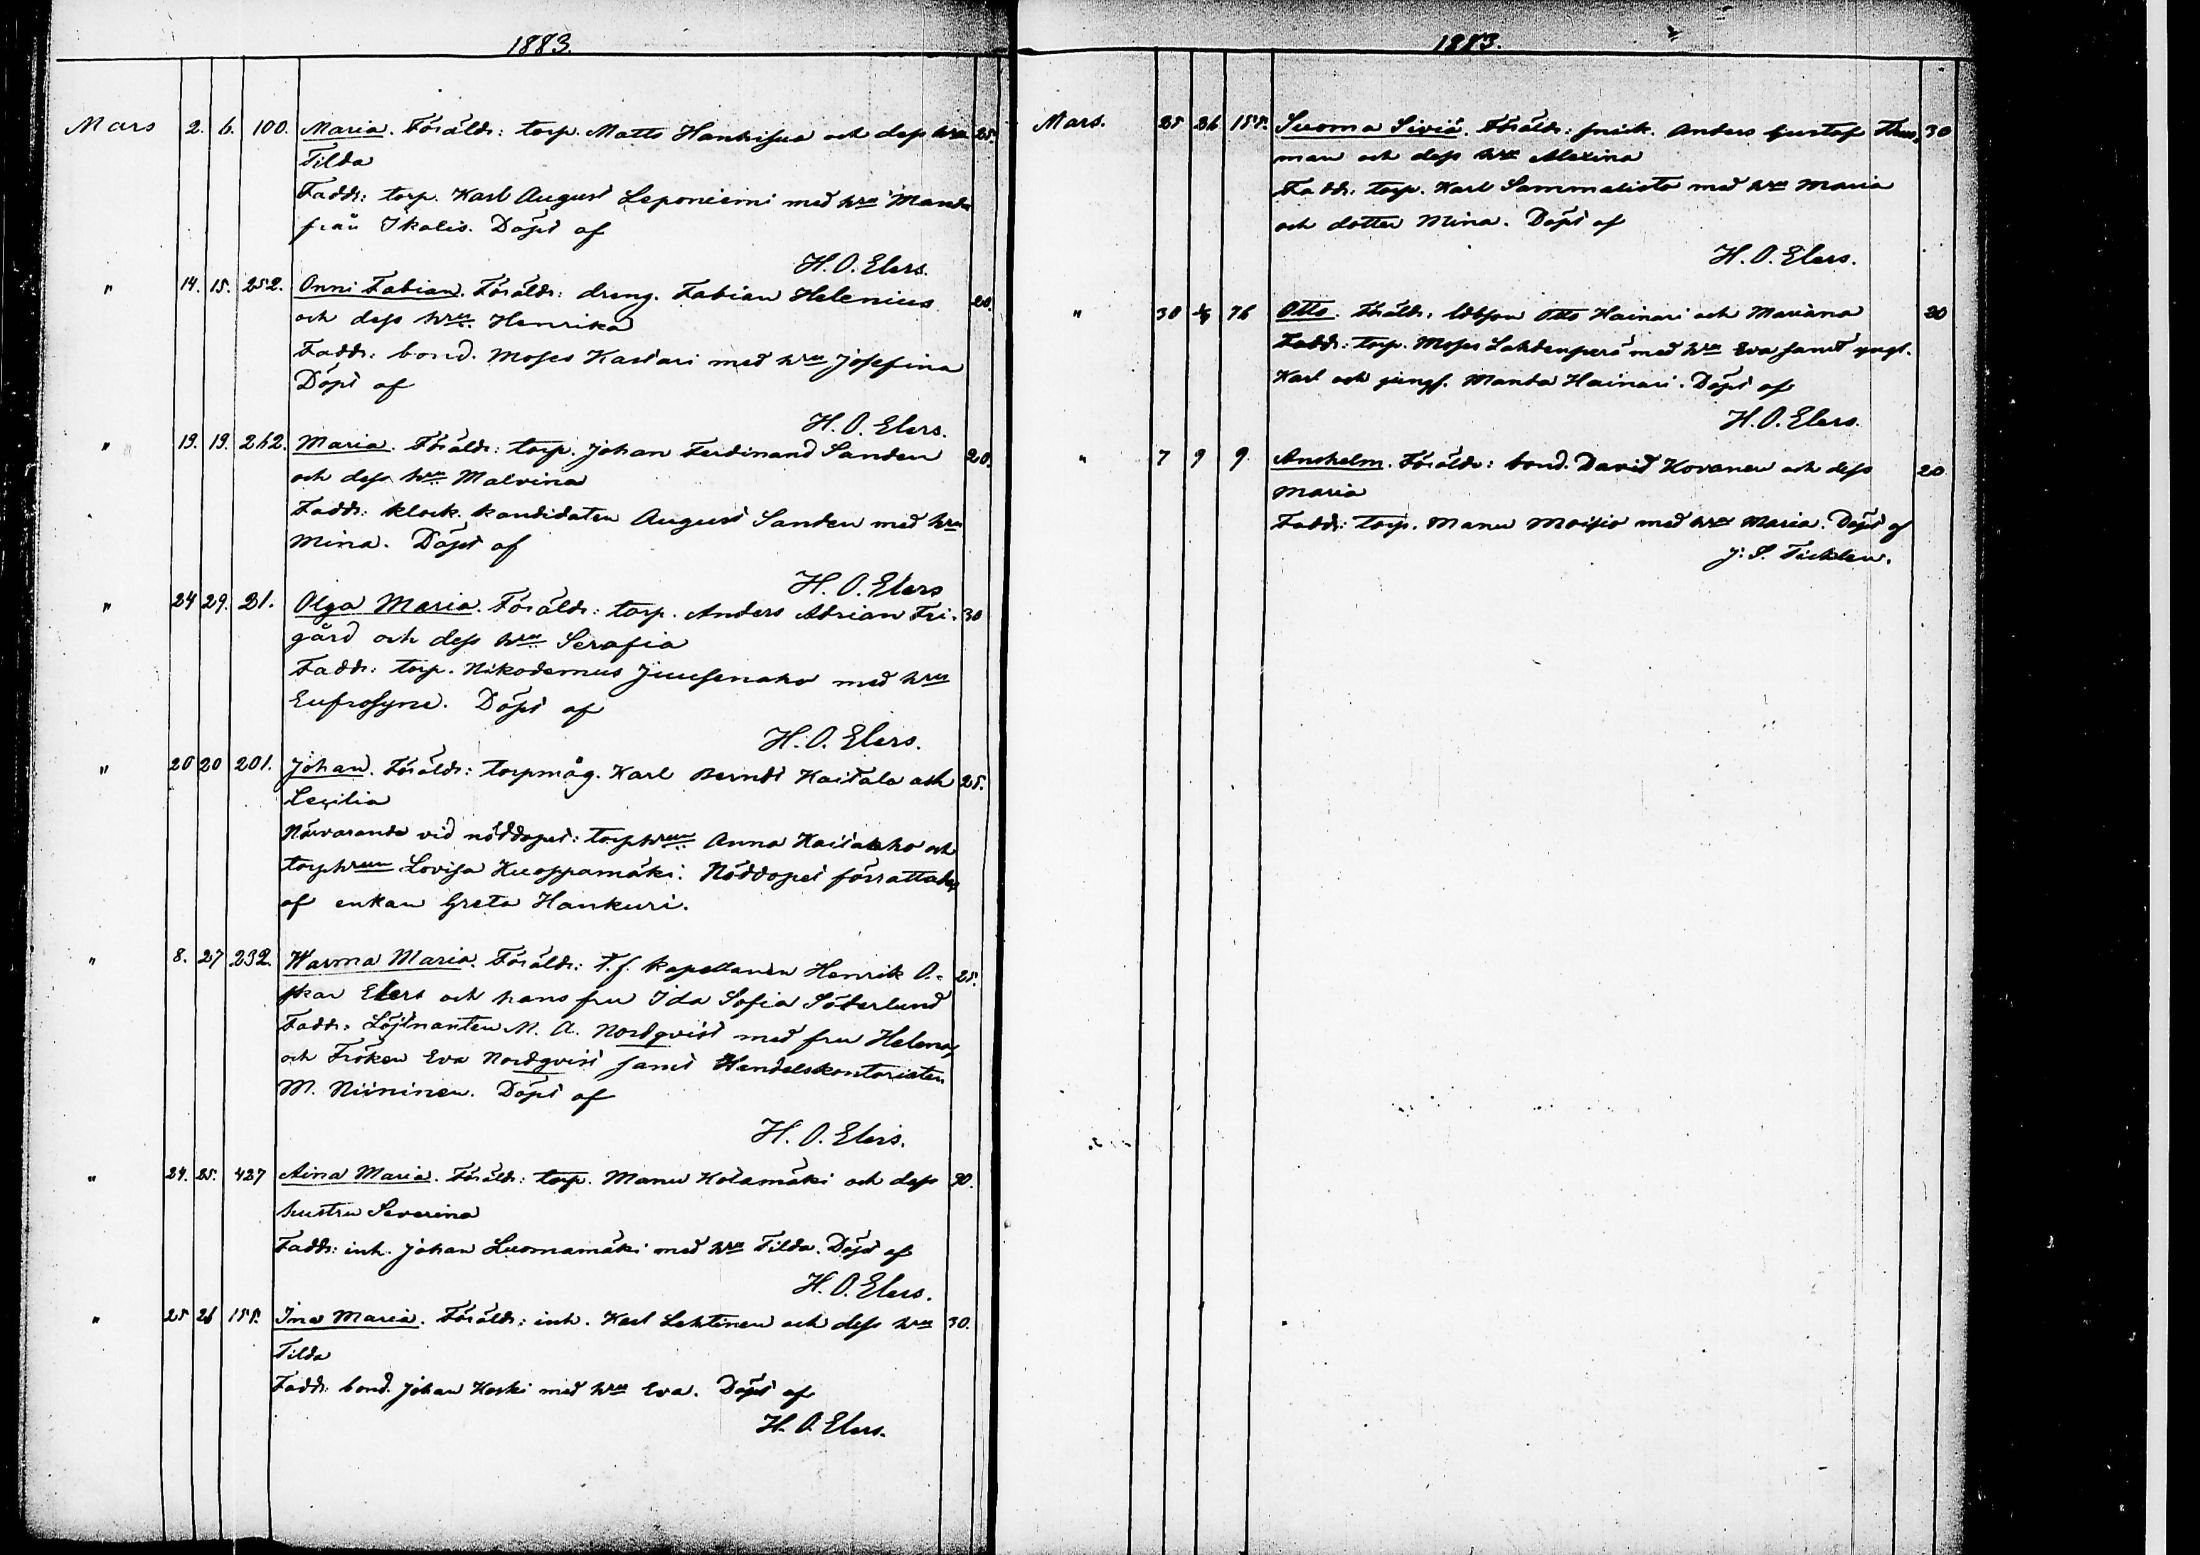 1883.
Mars 2. 6. 100. Maria. Föräldr: torp. Matts Hankisua och dess hru 25.
Tilda
Faddr: torp. Karl August Leponiemi med hru Manda
från Ikalis. Döpt af
H. O. Elers.
" 14. 15. 252. Onni Fabian. Föräldr: dreng. Fabian Helenius 20.
och dess hru Henrika
Faddr: bond. Moses Kastari med hru Josefina
Döpt af
H. O. Elers.
" 19. 19. 262. Maria. Föräldr: torp. Johan Ferdinand Sanden 20.
och dess hru Malvina
Faddr: klock. kandidaten August Sanden med hru
Mina. Döpt af
H. O. Elers
" 24 29. 31. Olga Maria. Föräldr: torp. Anders Adrian Fri- 30
gård och dess hru Serafia
Faddr: torp. Nikodemus Juusenaho med hru
Eufrosyne. Döpt af
H. O. Elers.
" 20 20 201. Johan. Föräldr: torpmåg. Karl Berndt Kaitala och 25.
Cecilia
Närvarande vid nöddopet: torphrun Anna Kaitaaho och
torphrun Lovisa Kuoppamäki. Nöddopet förrättades
af enkan Greta Hankuri.
" 8. 27 232. Warma Maria. Föräldr: t. f. kapellanen Henrik O- 25.
skar Elers och hans fru Ida Sofia Söderlund
Faddr: Löjtnanten N. A. Nordqvist med fru Helena,
och Fröken Eva Nordqvist samt Handelskontoristen
M. Niininen. Döpt af
H. O. Elers.
" 24. 25. 427 Aina Maria. Föräldr: torp. Manu Kotamäki och dess 30.
hustru Severina
Faddr: inh. Johan Luomamäki med hru Tilda. Döpt af
H. O. Elers.
" 25 26 155. Ina Maria. Föräldr: inh. Karl Lehtinen och dess hru 30.
Tilda
Faddr: bond. Johan Koski med hru Eva. Döpt af
H. O. Elers.
1883.
Mars. 25 26 155. Suoma Siviä. Föräldr: Anders Gustaf 30
man och dess hru Alexina
Faddr: torp. Karl Sammalisto med hru Maria
och dotter Mina. Döpt af
H. O. Elers.
" 30 76 Otto. Föräldr: Otto Hainari och Mariana 30
Faddr: torp. Moses Lahdenperä med hru Eva samt yngl.
Karl och jungf. Manda Hainari. Döpt af
H. O. Elers.
" 7 9 9 Anshelm. Föräldr: bond. David Kovanen och dess 20
Maria
Faddr: torp. Manu Moisio med hru Maria. Döpt af
J. S. Ticklen.